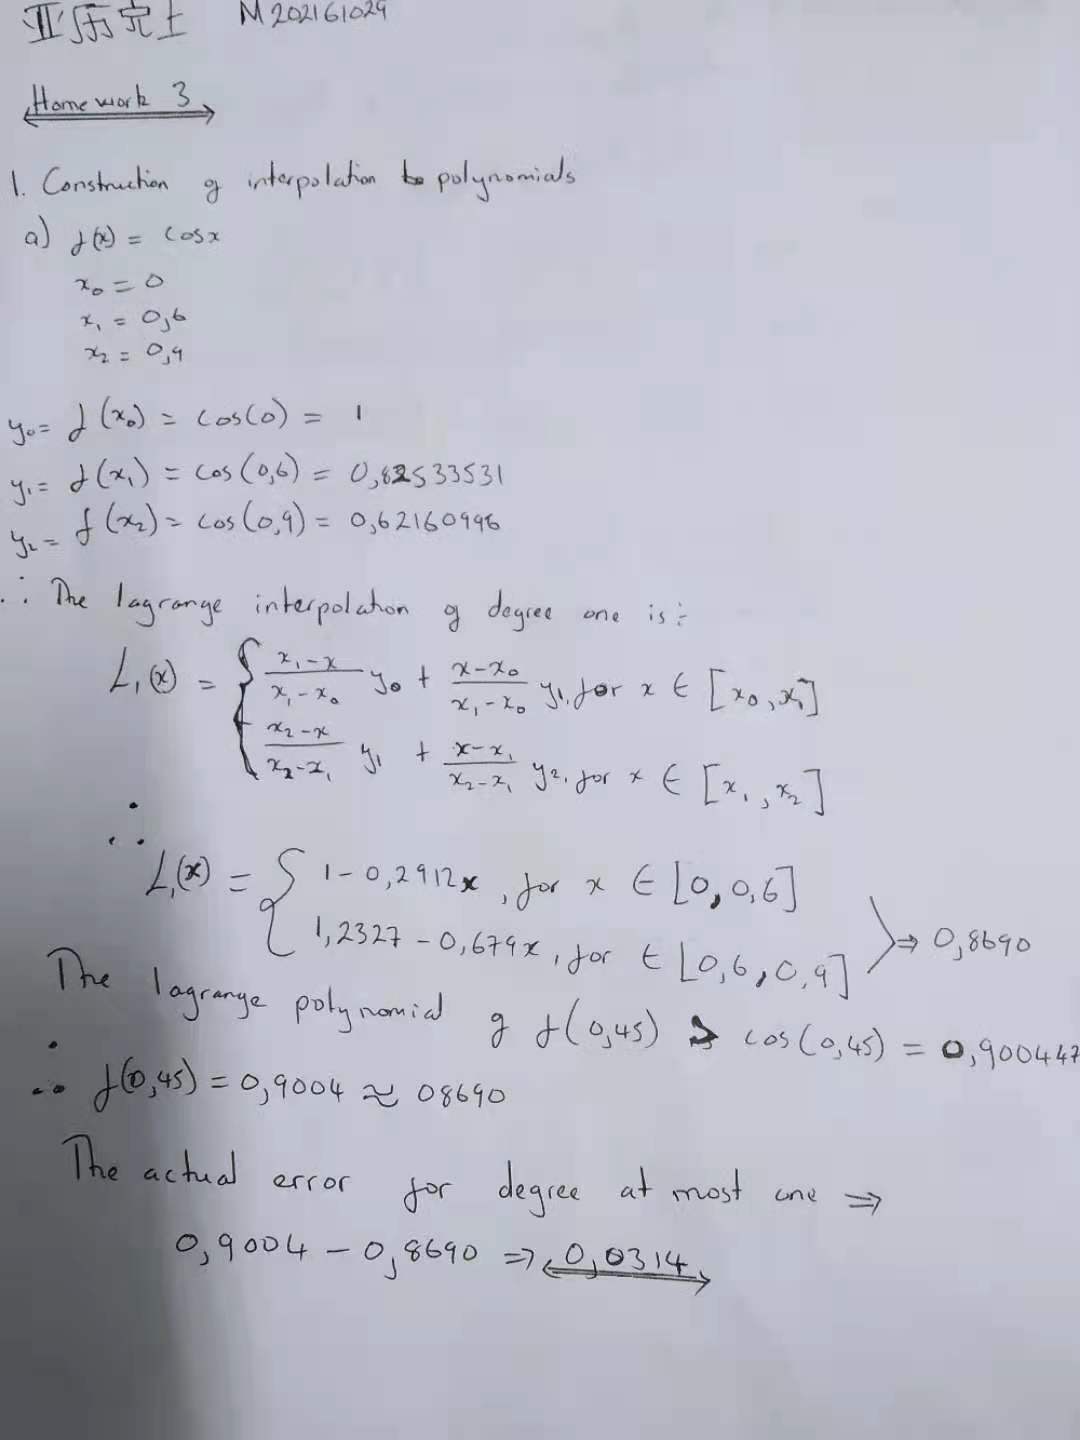 亚历克士 M202161029
Homework 3
1. Construction of interpolation to polynomials
a) f(x) = cosx
x₀ = 0
x₁ = 0,6
x₂ = 0,9
y₀= f(x₀) = cos(0) = 1
y₁= f(x₁) = cos(0,6) = 0,82533531
y₂= f(x₂) = cos(0,9) = 0,62160996
∴ The lagrange interpolation of degree one is:
L₁(x) = { (x₁-x)/(x₁-x₀) y₀ + (x-x₀)/(x₁-x₀) y₁, for x ∈ [x₀,x₁]
(x₂-x)/(x₂-x₁) y₁ + (x-x₁)/(x₂-x₁) y₂, for x ∈ [x₁,x₂]
∴
L₁(x) = { 1-0,2912x, for x ∈ [0,0,6]
1,2327-0,679x, for ∈ [0,6,0,9] ⇒ 0,8690
The lagrange polynomial of f(0,45) ⇒ cos(0,45) = 0,900447
∴ f(0,45) = 0,9004 ≈ 08690
The actual error for degree at most one ⇒
0,9004 - 0,8690 ⇒ 0,0314